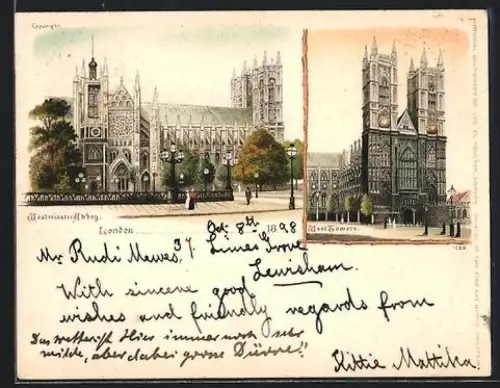 Copyright.
Westminster Abbey.
West Towers.
London
Oct 8th 1898
37. Limes Grove
Mr Rudi Mewes,
Lewisham.
With sincere good
wishes and friendly regards from
Das Wetter ist Hier immer noch sehr
milde, aber dabei grosse Dürre!!
Kittie Mattika.